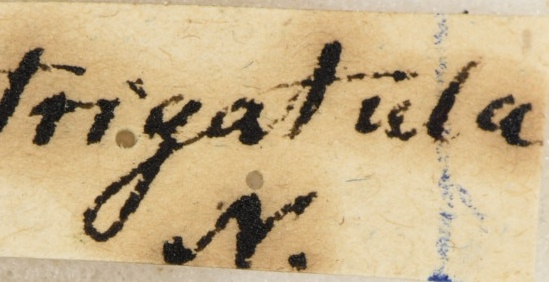 trigatula
N.